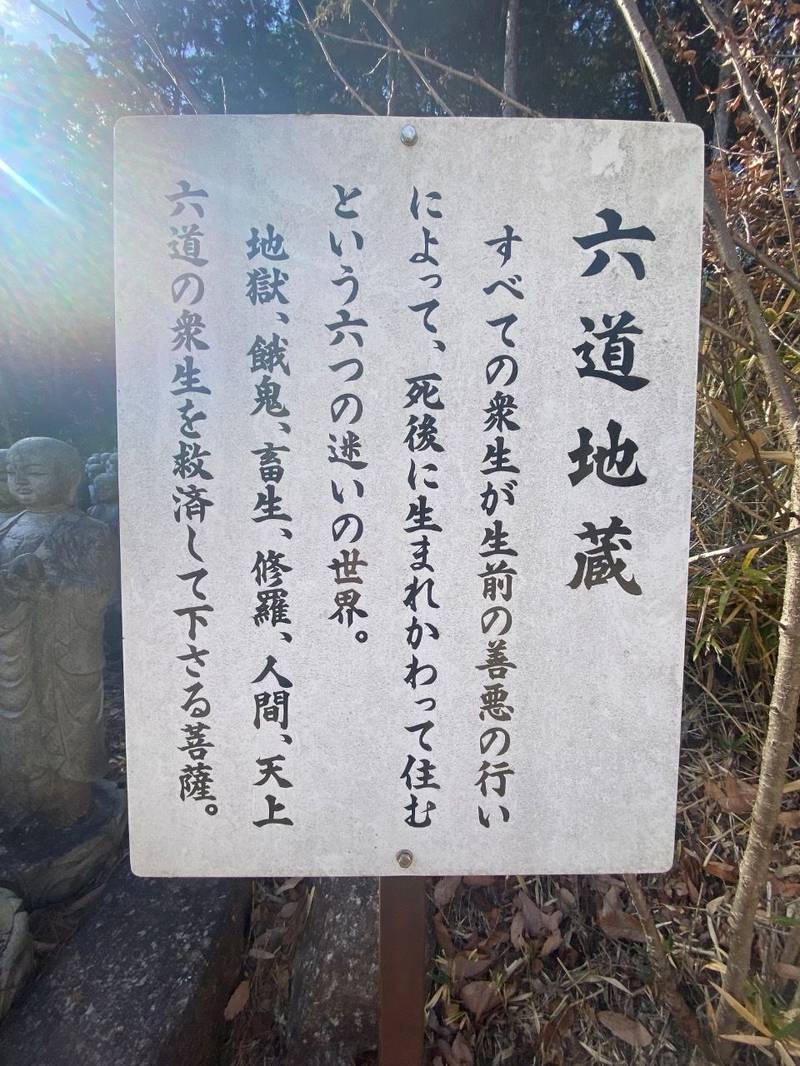 六道地蔵
すべての衆生が生前の善悪の行い
によって、死後に生まれかわって住む
という六つの迷いの世界。
地獄、餓鬼、畜生、修羅、人間、天上
六道の衆生を救済して下さる菩薩。